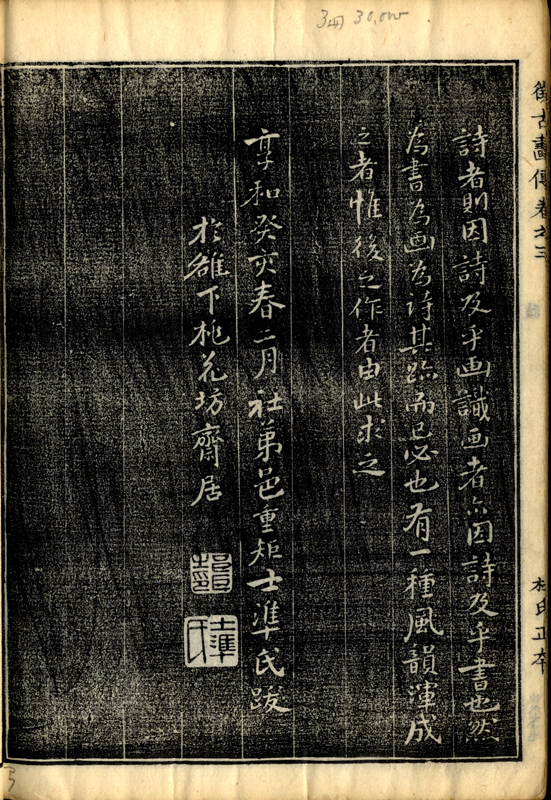 3冊 30,000
復古畫傳卷之三
詩者則因詩及乎画識画者亦因詩及乎書也然
為書為画為詩其跡而已必也有一種風韻渾成
之者惟後之作者由此求之
享和癸亥春二月社弟邑重矩士準氏跋
於雒下桃花坊齋居
士準氏
林氏正本
5